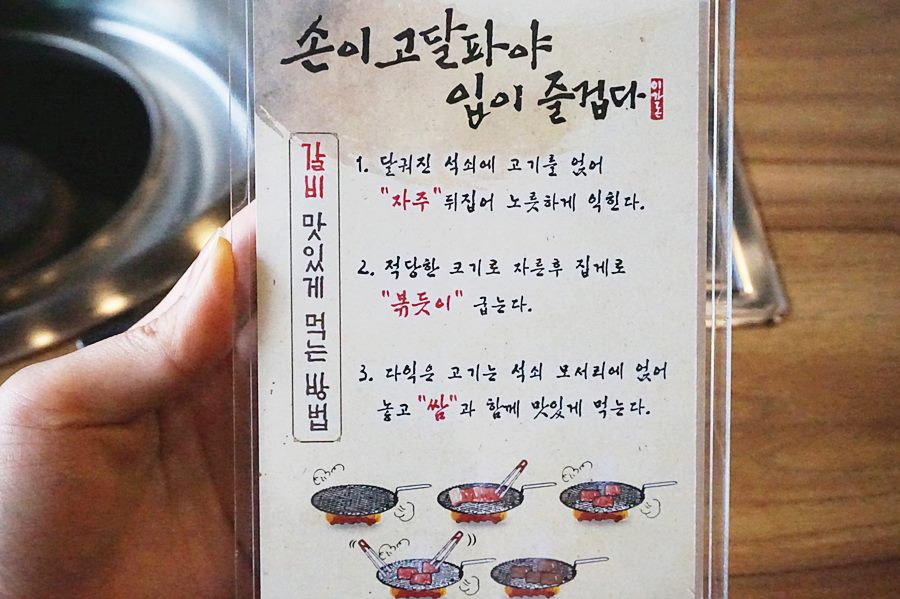 손이 고달파야
입이 즐겁다
갈비 맛있게 먹는 방법
1. 달궈진 석쇠에 고기를 얹어
"자주" 뒤집어 노릇하게 익힌다.
2. 적당한 크기로 자른후 집게로
"볶듯이" 굽는다.
3. 다익은 고기는 석쇠 모서리에 얹어
놓고 "쌈"과 함께 맛있게 먹는다.